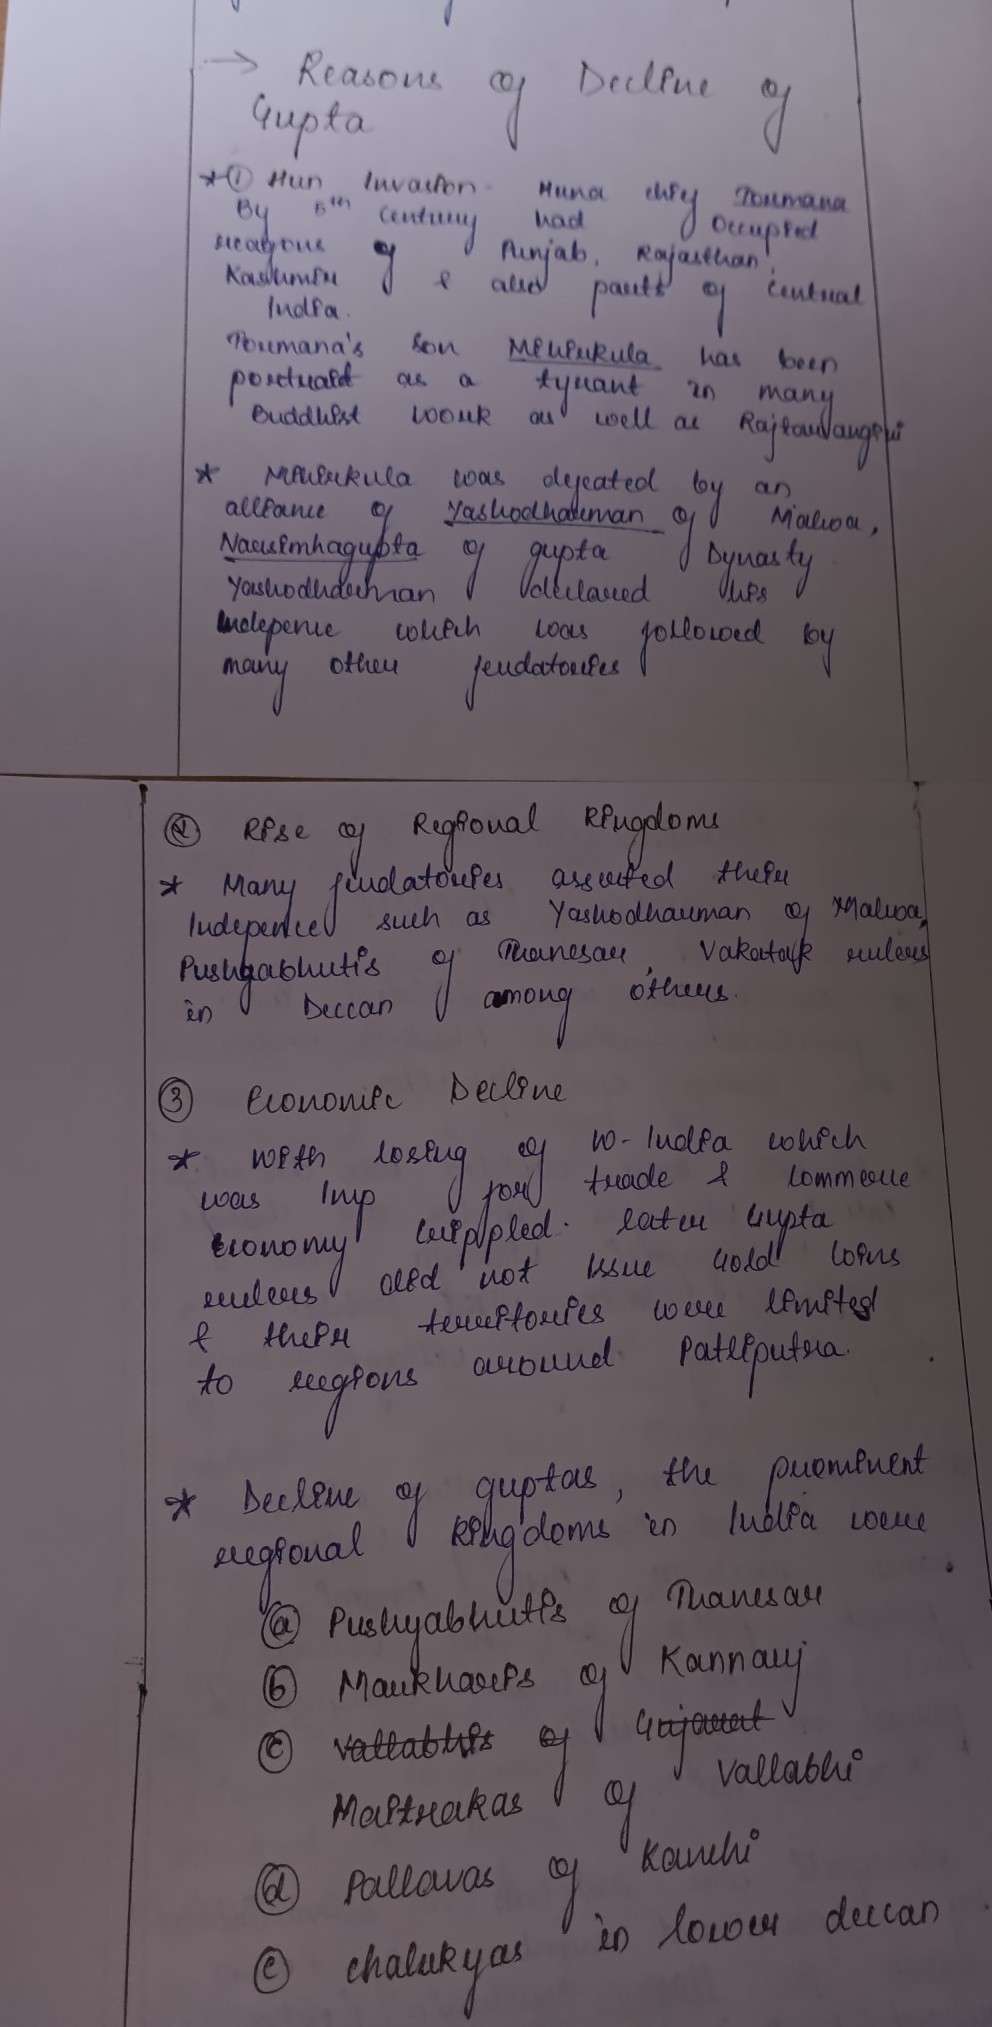 → Reasons of Decline of
Gupta
*① Hun Invasion - Huna chief Toumana
By 5th century had occupied
reagons of Punjab, Rajasthan,
Kashmir & also parts of central
India.
Toumana's son Mihirkula has been
portraid as a tyrant in many
Buddhist work as well as Rajtarangini
* Mihirkula was defeated by an
alliance of Yashodharman of Malwa,
Narsimhagupta of gupta Dynasty
Yashodharman declared his
Indepence which was followed by
many other feudatories
② Rise of Regional Kingdoms
* Many feudatories asserted their
Indepence such as Yashodharman of Malwa,
Pushyabhutis of Thanesar, Vakatak rulers
in Deccan among others.
③ Economic Decline
* With losing of W-India which
was Imp for trade & commerce
economy crippled. later Gupta
rulers did not issue Gold coins
& their territories were limited
to regions around Patliputra.
* Decline of guptas, the prominent
regional Kingdoms in India were
ⓐ Pushyabhutis of Thanesar
ⓑ Maukharis of Kannauj
ⓒ Vallabhis of Gujarat
Maitrakas of Vallabhi
ⓓ Pallavas of Kanchi
ⓔ Chalukyas in lower deccan